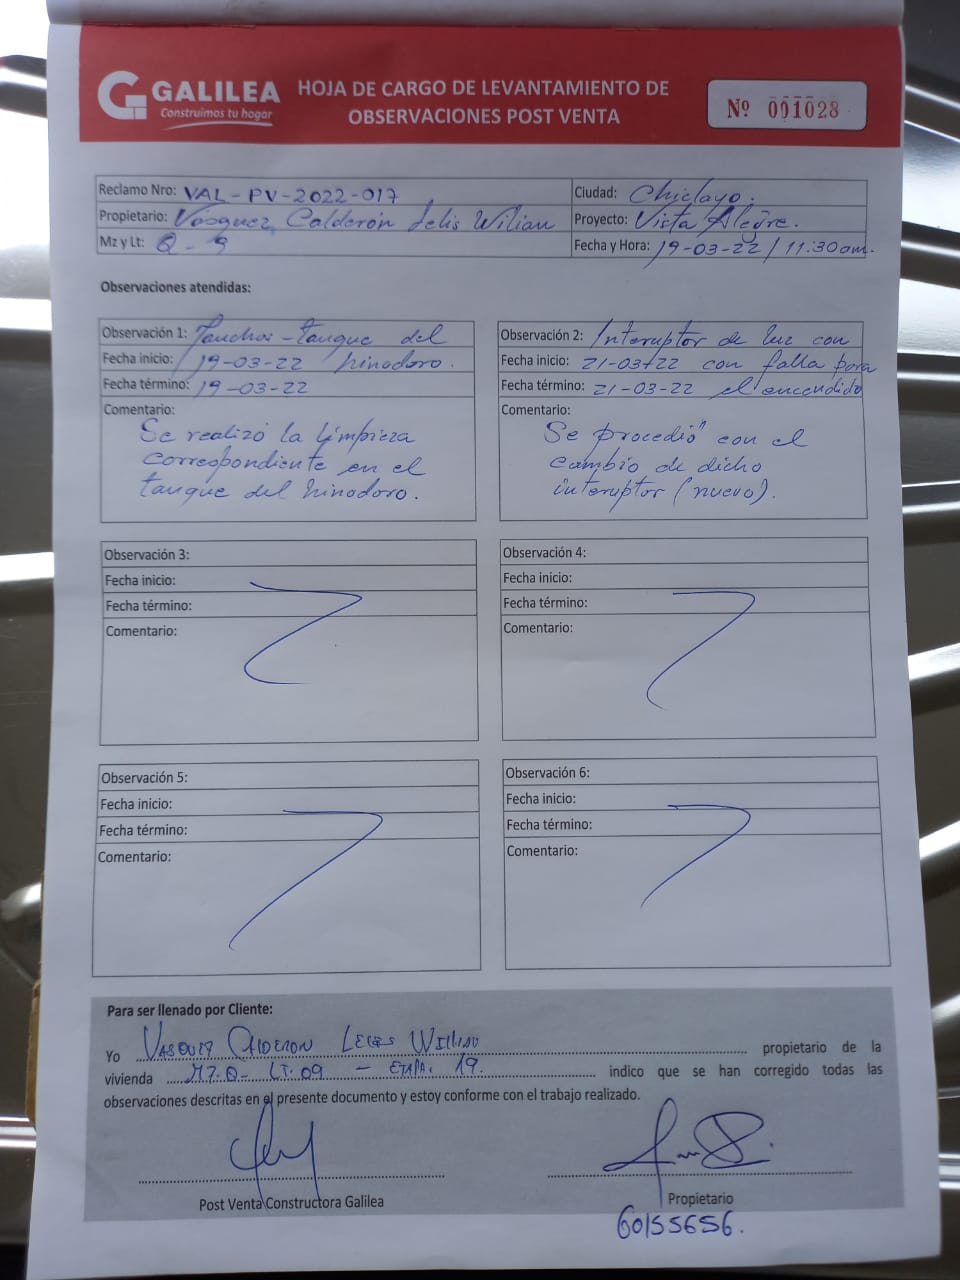 GALILEA
Construimos tu hogar
HOJA DE CARGO DE LEVANTAMIENTO DE
OBSERVACIONES POST VENTA
Nº 001028
Reclamo Nro: VAL-PV-2022-017
Ciudad: Chiclayo.
Propietario: Vásquez Calderón Wilian
Proyecto: Vista Alegre.
Mz y Lt: Q - 9
Fecha y Hora: 19-03-22 / 11:30am.
Observaciones atendidas:
Observación 1: - tanque del
Fecha inicio: 19-03-22 hinodoro.
Fecha término: 19-03-22
Comentario:
Se realizó la limpieza
correspondiente en el
tanque del hinodoro.
Observación 2: Interuptor de luz con
Fecha inicio: 21-03-22 con falla para
Fecha término: 21-03-22 el encendido
Comentario:
Se procedió con el
cambio de dicho
interuptor (nuevo).
Observación 3:
Fecha inicio:
Fecha término:
Comentario:
Observación 4:
Fecha inicio:
Fecha término:
Comentario:
Observación 5:
Fecha inicio:
Fecha término:
Comentario:
Observación 6:
Fecha inicio:
Fecha término:
Comentario:
Para ser llenado por Cliente:
Yo VASQUEZ CALDERON WILLIAN propietario de la
vivienda MZ.Q - LT.09 - ETAPA. 19. indico que se han corregido todas las
observaciones descritas en el presente documento y estoy conforme con el trabajo realizado.
Post Venta Constructora Galilea
Propietario
60155656.